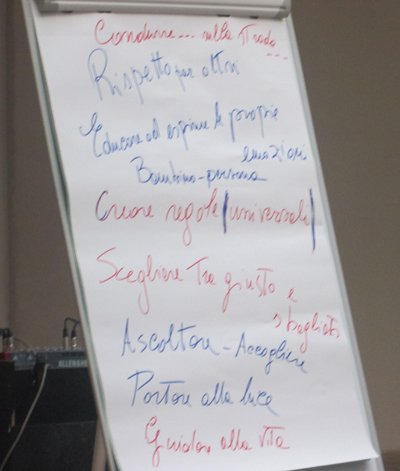 Condurre... sulla strada...
Rispetto per altri
Educare ad esprimere le proprie
emozioni
Bambino-persona
Creare regole (universali)
Scegliere tra giusto e
sbagliato
Ascoltare - Accogliere
Portare alla luce
Guidare alla vita